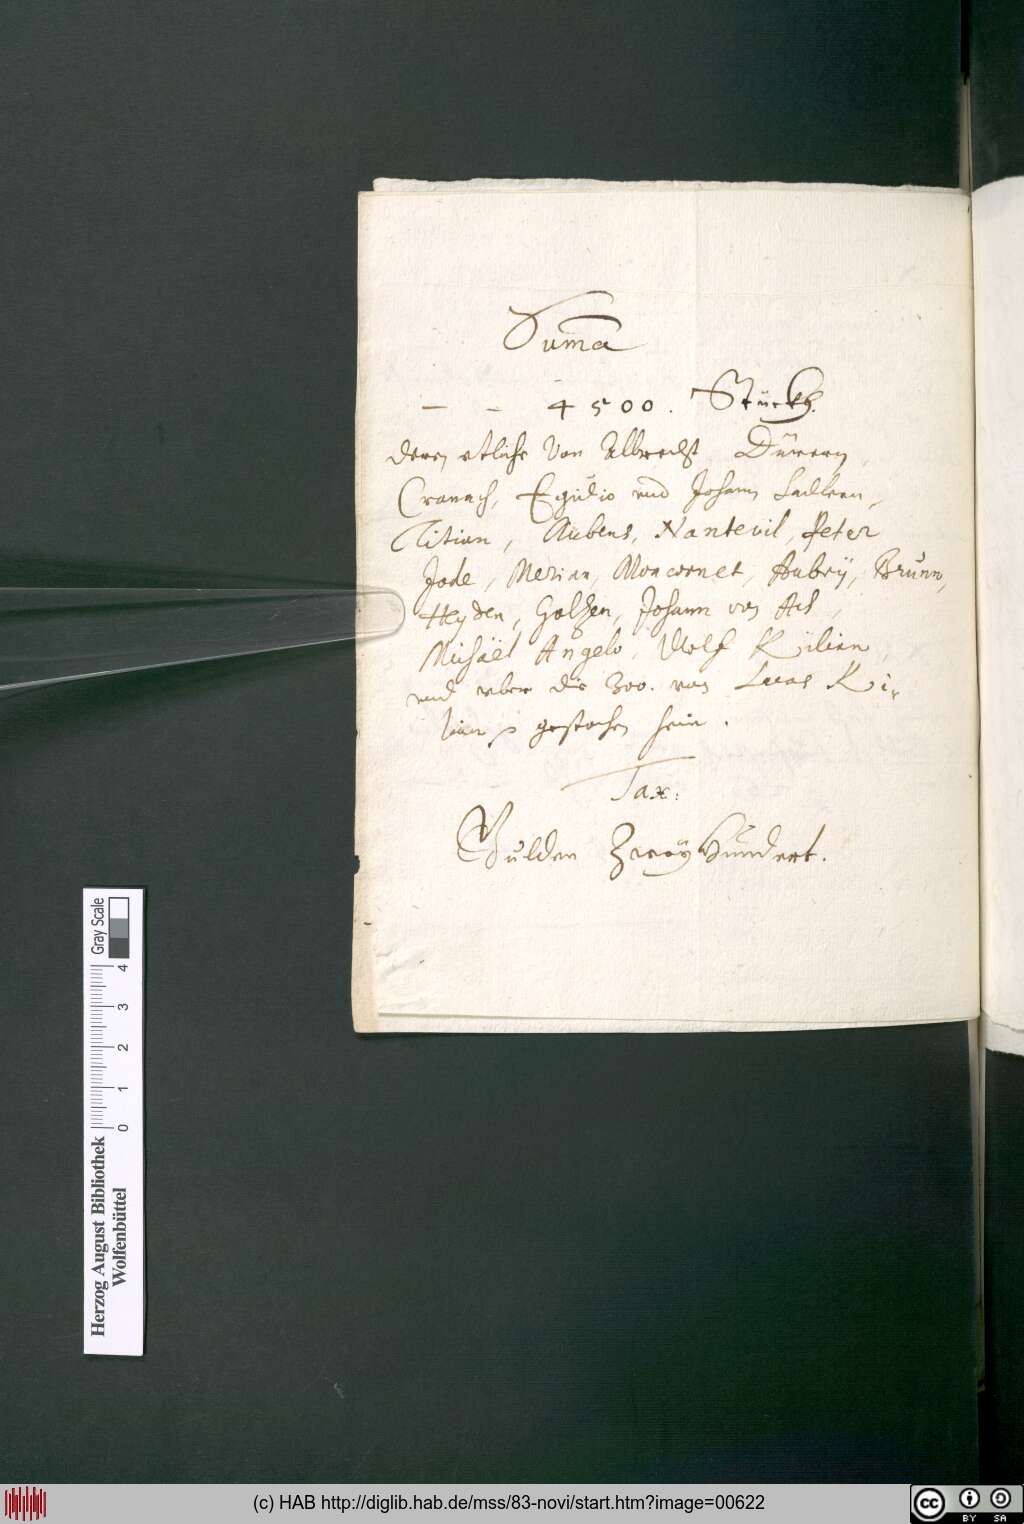 Suma
— — 4500. Stückh.
deren etliche Von Albrecht Dürern,
Cranach, Egidio und Johann Sadlern,
Titian, Rubens, Nanteuil, Peter
Jode, Merian, Moncornet, Aubrÿ, Brunn,
Heyden, Golzen, Johann von Ach,
Michäel Angelo, Wolf Kilian,
und uber die 300. von Lucas Ki-
lian gestochen sein.
Tax:
Gulden Zweÿ Hundert.
Gray Scale
0 1 2 3 4
Herzog August Bibliothek
Wolfenbüttel
(c) HAB http://diglib.hab.de/mss/83-novi/start.htm?image=00622
cc BY SA